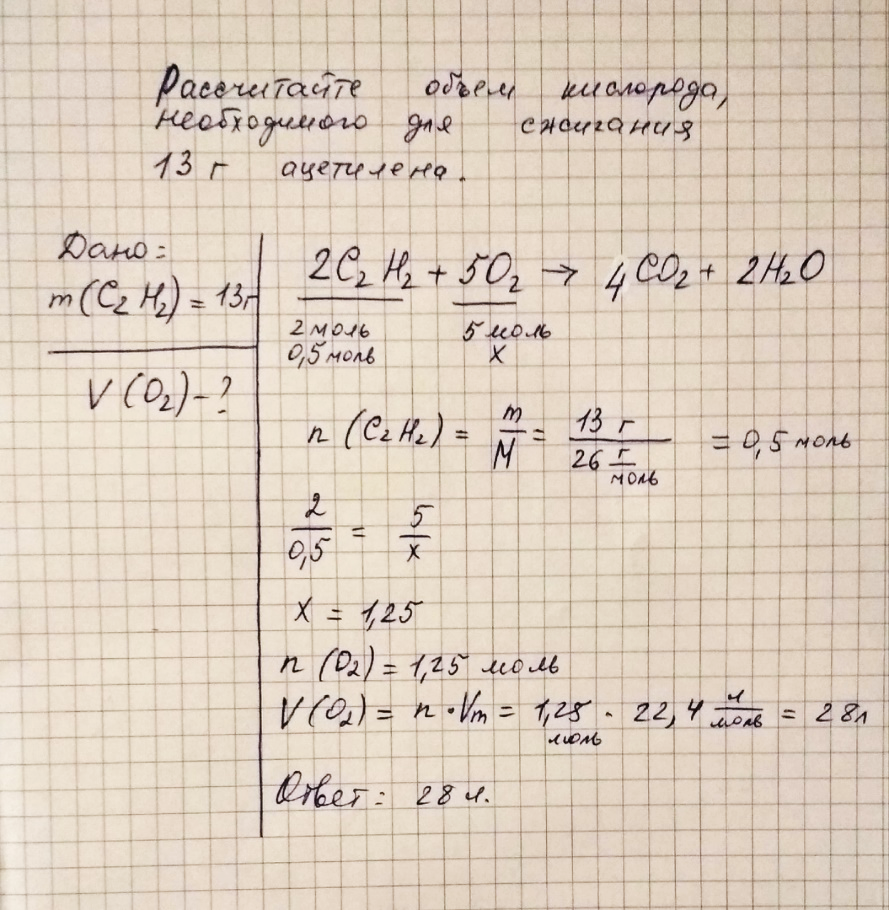 Рассчитайте объем кислорода,
необходимого для сжигания
13 г ацетилена.
Дано:
m(C₂H₂) = 13г
V(O₂) - ?
2C₂H₂ + 5O₂ → 4CO₂ + 2H₂O
2 моль 5 моль
0,5 моль x
n (C₂H₂) = m/M = 13 г / 26 г/моль = 0,5 моль
2/0,5 = 5/x
x = 1,25
n (O₂) = 1,25 моль
V(O₂) = n · Vm = 1,25 моль · 22,4 л/моль = 28л
Ответ: 28 л.